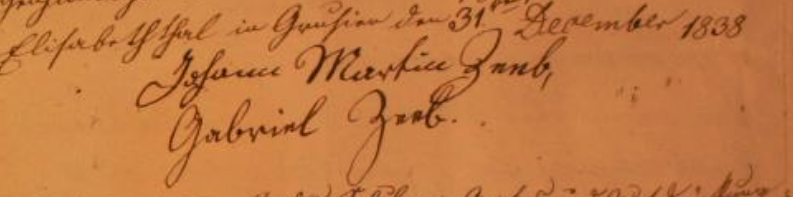 Elisabeththal in Grusien den 31ten December 1838
Johann Martin Zeeb,
Gabriel Zeeb.